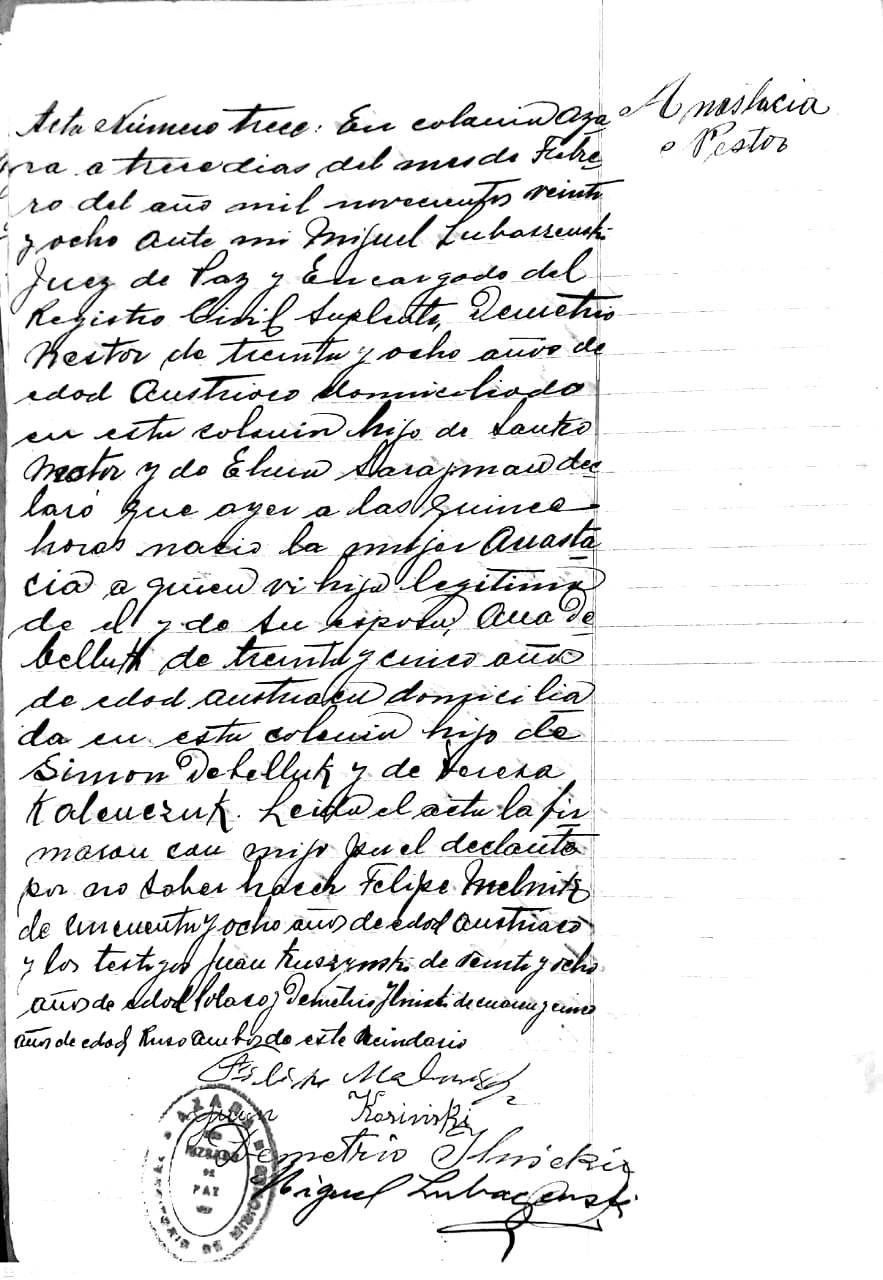 Acta Número trece: En colonia Aza
ra a trece dias del mes de Febre
ro del año mil novecientos veinti
y ocho ante mi Miguel Lubaszenski
Juez de Paz y Encargado del
Registro Civil Suplente, Demetrio
Nestor de treinta y ocho años de
edad Austriaco domiciliado
en esta colonia hijo de
Nestor y de Elena dec
laró que ayer a las quince
horas nacio la mujer Anasta
cia a quien vi hija legitima
de el y de su esposa, Ana De
belluk de treinta y cinco años
de edad austriaca domicilia
da en esta colonia hija de
Simon Debelluk y de Teresa
Kalenczuk. Leida el acta la fir
maron con migo por el declante
por no saber hacer Felipe Melnik
de cincuenta y ocho años de edad Austriaco
y los testigos Juan de veinte y ocho
años de edad Polaco y Demetrio Ilnicki de cuarenta y cinco
años de edad Ruso ambos de este vecindario
Anastacia
Nestor
Juan Kosinski
Demetrio Ilnicki
Miguel
AZARA
JUZGADO
DE
PAZ